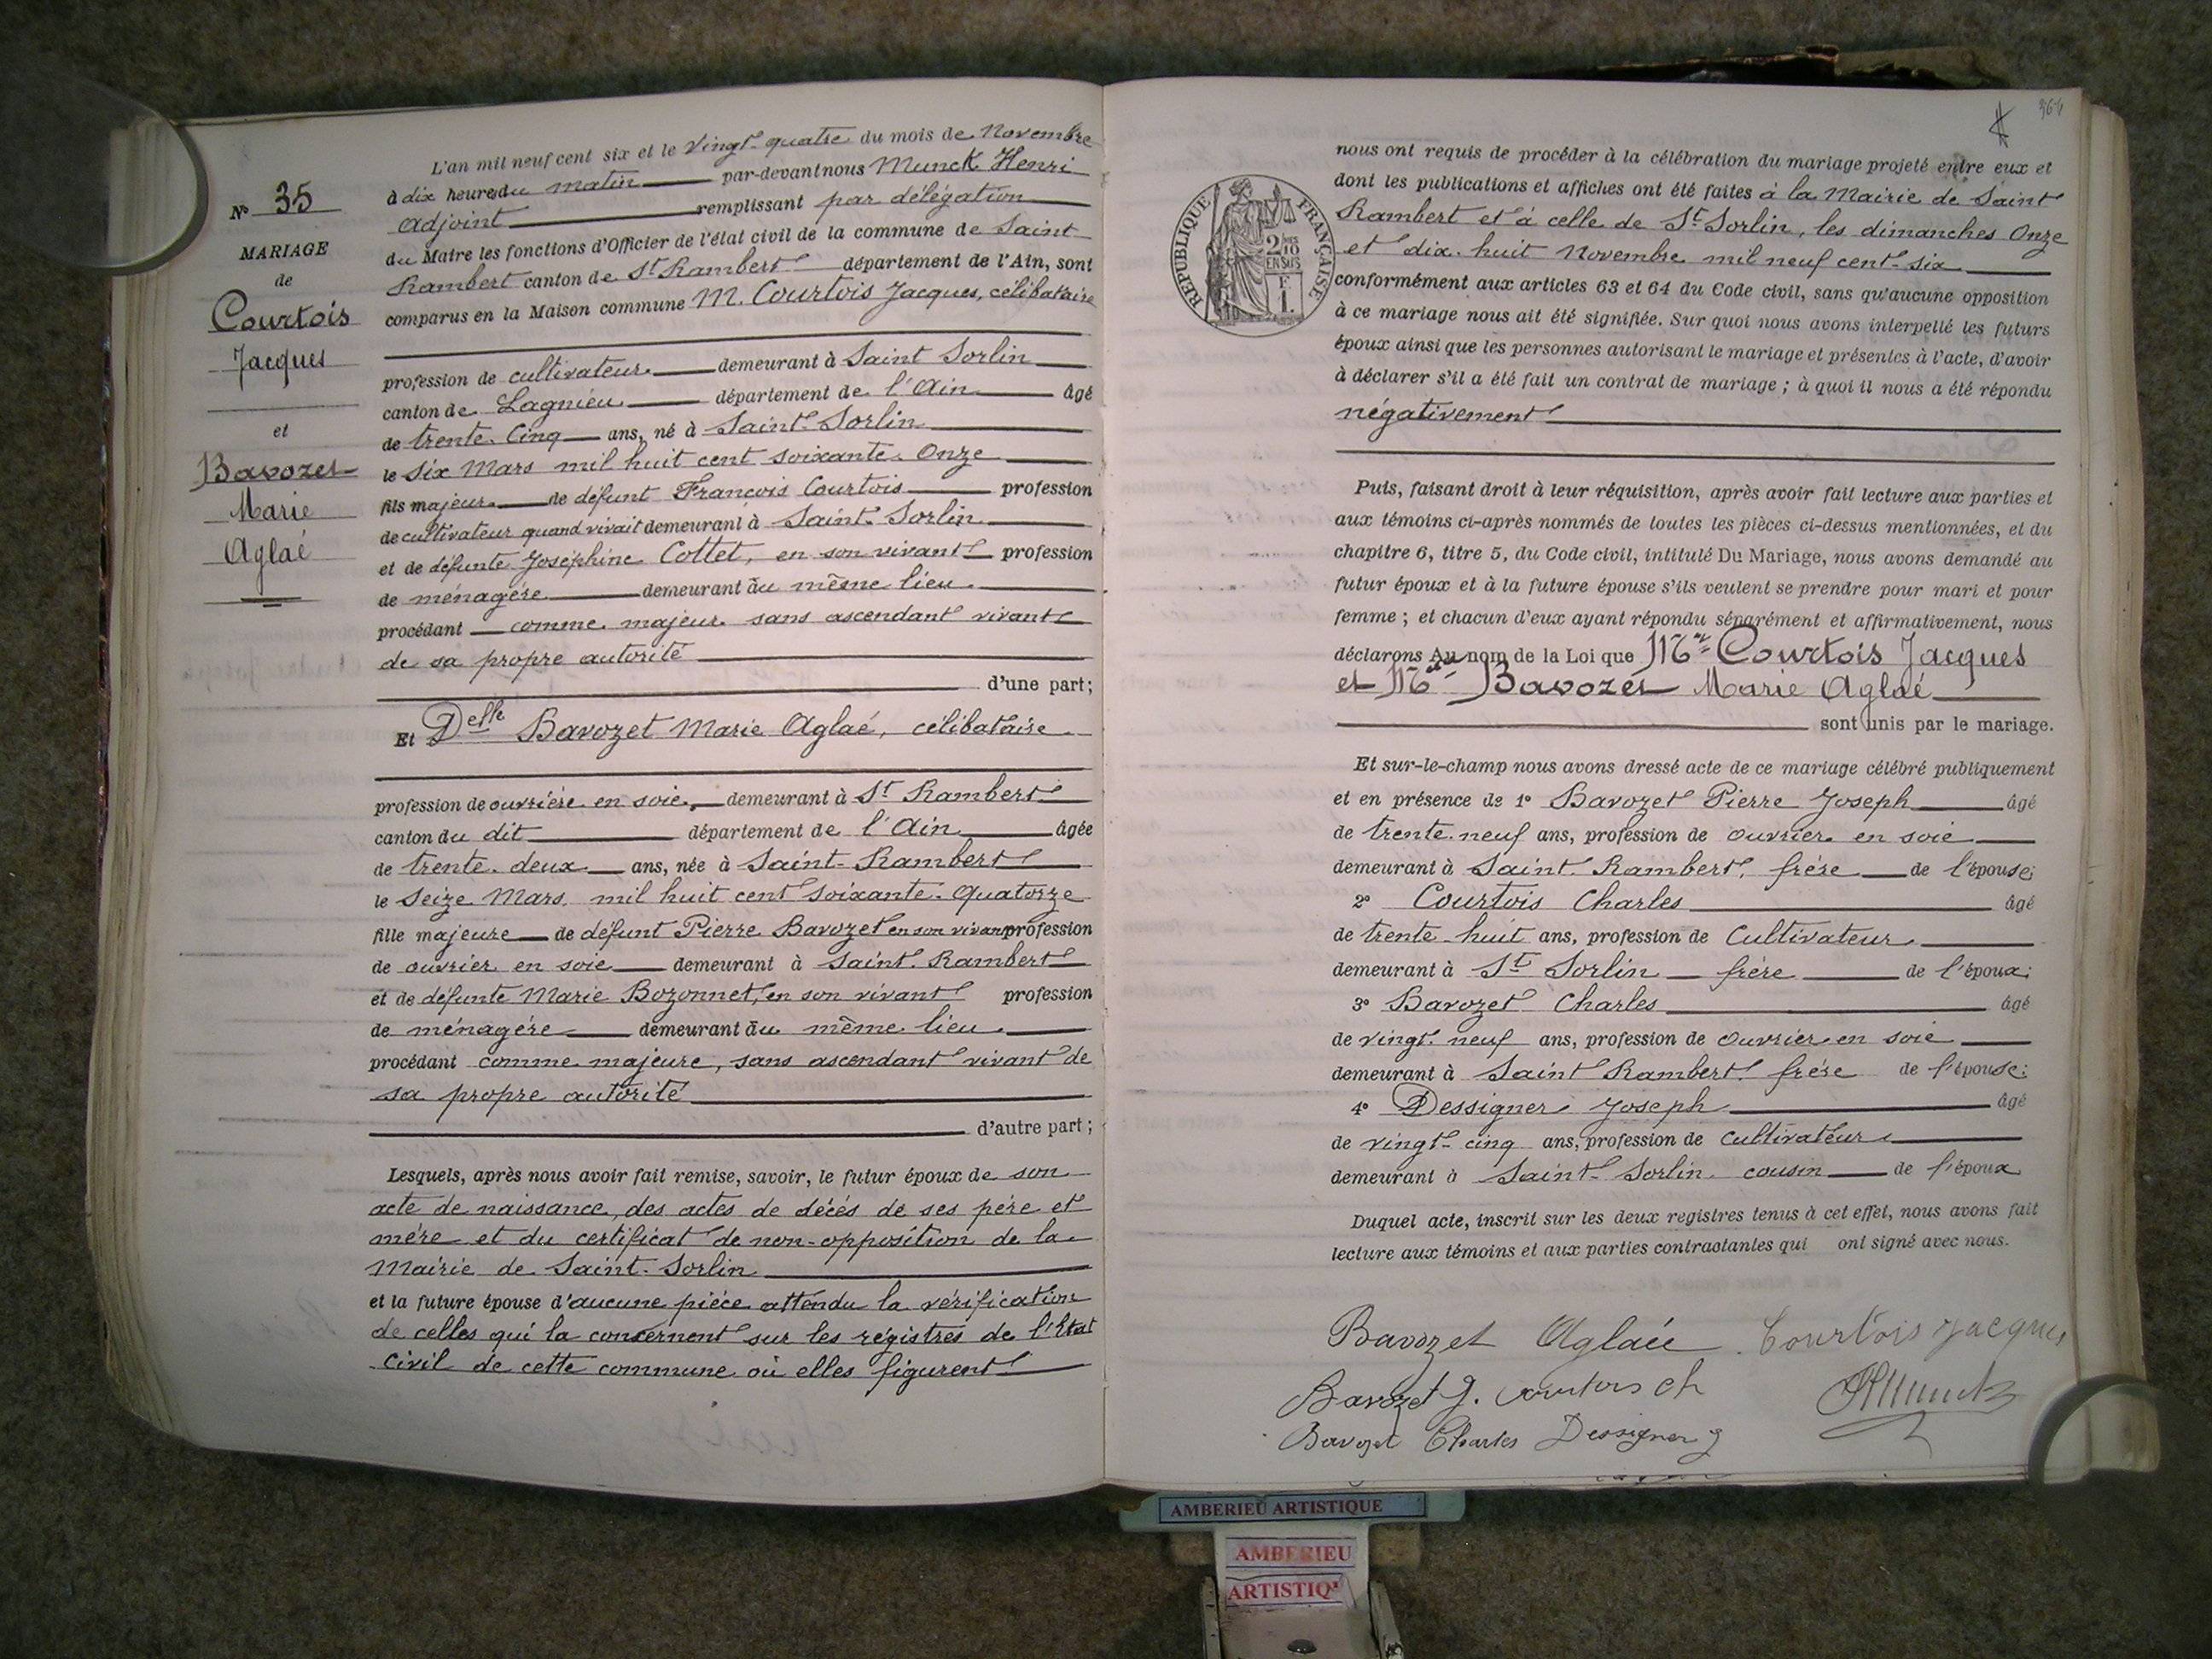 N° 35
MARIAGE
de
Courtois
Jacques
et
Bavozet
Marie
Aglaé
L'an mil neuf cent six et le vingt-quatre du mois de Novembre
à dix heures du matin par-devant nous Munck Henri
adjoint remplissant par délégation
du Maire les fonctions d'Officier de l'état civil de la commune de Saint
Rambert canton de St Rambert département de l'Ain, sont
comparus en la Maison commune M. Courtois Jacques, célibataire
profession de cultivateur demeurant à Saint Sorlin
canton de Lagnieu département de l'Ain âgé
de trente-cinq ans, né à Saint-Sorlin
le six Mars mil huit cent soixante-Onze
fils majeur de défunt François Courtois profession
de cultivateur quand vivait demeurant à Saint-Sorlin
et de défunte Joséphine Cottet, en son vivant profession
de ménagère demeurant au même lieu
procédant comme majeur sans ascendant vivant
de sa propre autorité
d'une part;
Et Delle Bavozet Marie Aglaé, célibataire
profession de ouvrière en soie demeurant à St Rambert
canton du dit département de l'Ain âgée
de trente-deux ans, née à Saint-Rambert
le Seize Mars mil huit cent soixante-Quatorze
fille majeure de défunt Pierre Bavozet en son vivant profession
de ouvrier en soie demeurant à Saint-Rambert
et de défunte Marie Bozonnet, en son vivant profession
de ménagère demeurant au même lieu
procédant comme majeure, sans ascendant vivant de
sa propre autorité
d'autre part;
Lesquels, après nous avoir fait remise, savoir, le futur époux de son
acte de naissance, des actes de décés de ses père et
mère et du certificat de non-opposition de la
Mairie de Saint-Sorlin
et la future épouse d'aucune pièce attendu la vérification
de celles qui la concernent sur les régistres de l'Etat
Civil de cette commune où elles figurent
364
RÉPUBLIQUE FRANÇAISE
2 10
EN SUS
F.
1.
nous ont requis de procéder à la célébration du mariage projeté entre eux et
dont les publications et affiches ont été faites à la Mairie de Saint
Rambert et à celle de St Sorlin, les dimanches Onze
et dix-huit Novembre mil neuf cent-six
conformément aux articles 63 et 64 du Code civil, sans qu'aucune opposition
à ce mariage nous ait été signifiée. Sur quoi nous avons interpellé les futurs
époux ainsi que les personnes autorisant le mariage et présentes à l'acte, d'avoir
à déclarer s'il a été fait un contrat de mariage ; à quoi il nous a été répondu
négativement
Puis, faisant droit à leur réquisition, après avoir fait lecture aux parties et
aux témoins ci-après nommés de toutes les pièces ci-dessus mentionnées, et du
chapitre 6, titre 5, du Code civil, intitulé Du Mariage, nous avons demandé au
futur époux et à la future épouse s'ils veulent se prendre pour mari et pour
femme ; et chacun d'eux ayant répondu séparément et affirmativement, nous
déclarons Au nom de la Loi que Mr Courtois Jacques
et Melle Bavozet Marie Aglaé
sont unis par le mariage.
Et sur-le-champ nous avons dressé acte de ce mariage célébré publiquement
et en présence de 1° Bavozet Pierre Joseph âgé
de trente-neuf ans, profession de ouvrier en soie
demeurant à Saint-Rambert, frère de l'épouse;
2° Courtois Charles âgé
de trente-huit ans, profession de Cultivateur
demeurant à St Sorlin frère de l'époux;
3° Bavozet Charles âgé
de vingt-neuf ans, profession de ouvrier en soie
demeurant à Saint Rambert frère de l'épouse;
4° Dessigner Joseph âgé
de vingt-cinq ans, profession de cultivateur
demeurant à Saint-Sorlin cousin de l'époux
Duquel acte, inscrit sur les deux registres tenus à cet effet, nous avons fait
lecture aux témoins et aux parties contractantes qui ont signé avec nous.
Bavozet Aglaée Courtois Jacques
Bavozet J. Courtois Ch HMunck
Bavozet Charles Dessigner J
AMBERIEU ARTISTIQUE
AMBERIEU
ARTISTIQ